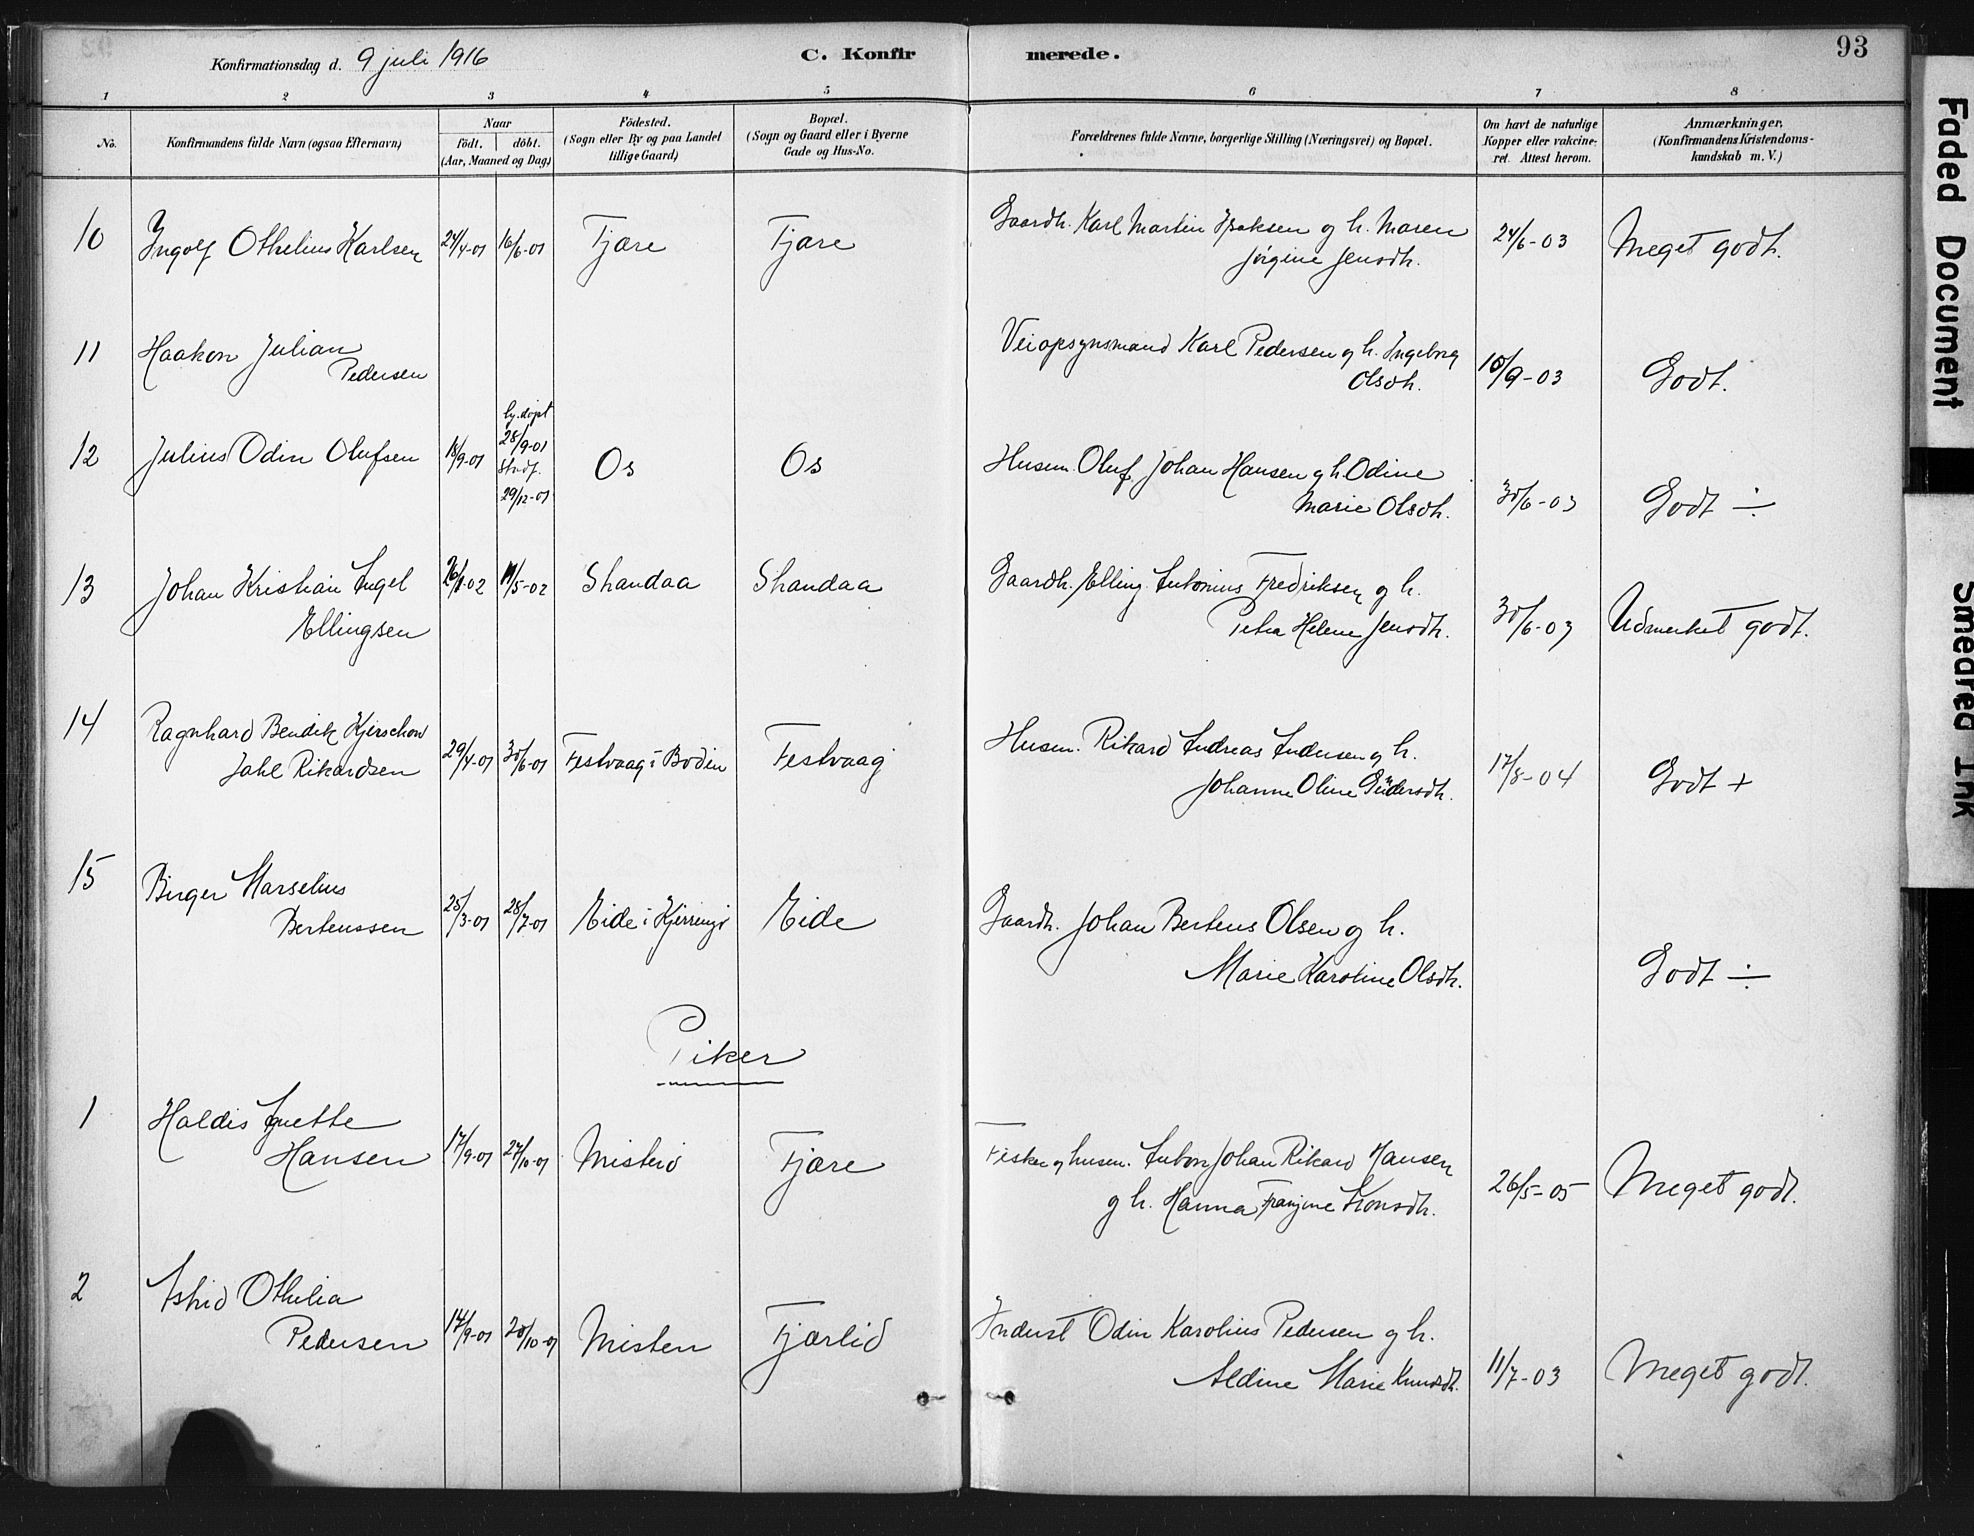 Konfirmationsdag d. 9 juli 1916
C. Konfir merede.
93
1 2 3 4 5 6 7 8
No.
Konfirmandens fulde Navn (ogsaa Efternavn)
Naar
födt. döbt.
(Aar, Maaned og Dag)
Födested.
(Sogn eller By og paa Landet
tillige Gaard)
Bopæl.
(Sogn og Gaard eller i Byerne
Gade og Hus-No.
Forældrenes fulde Navne, borgerlige Stilling (Næringsvei) og Bopæl.
Om havt de naturlige
Kopper eller vakcine-
ret. Attest herom.
Anmærkninger.
(Konfirmandens Kristendoms-
kundskab m. V.)
10 Ingolf Othelius Karlsen 24/4-01 16/6-01 Fjære Fjære Gaardh. Karl Martin Isaksen og h. Maren
Jørgine Jensdh. 24/6-03 Meget godt.
11 Haakon Julian
Pedersen
Veiopsynsmand Karl Pedersen og h. Ingeborg
Olsdh. 10/9-03 Godt.
12 Julius Odin Olufsen 18/9-01
hj.døpt
28/9-01
stadf.
29/12-01
Os Os Husm. Oluf Johan Hansen og h. Odine
Marie Olsdh. 30/6-03 Godt ÷
13 Johan Kristian Angel
Ellingsen 26/1-02 19/5-02 Skandaa Skandaa Gaardh. Elling Antonius Fredriksen og h.
Petra Helene Jensdh. 30/6-03 Udmerket godt.
14 Ragnhard Bendik Kjerschow
Jahl Rikardsen 29/4-01 30/6-01 Festvaag i Bodin Festvaag Husm. Rikard Andreas Andersen og h.
Johanne Oline Gudersdh. 17/8-04 Godt +
15 Birger Marselius
Bertenssen 25/3-01 28/7-01 Eide i Kjerringø Eide Gaardh. Johan Bertens Olsen og h.
Marie Karoline Olsdh. Godt ÷
Piker
1 Haldis Agnette
Hansen 17/9-01 27/10-01 Misten Fjære Fisker og husm. Anton Johan Rikard Hansen
og h. Hanna Fransine Aronsdh. 26/5-05 Meget godt.
2 Astrid Othilia
Pedersen 14/9-01 20/10-01 Misten Fjærlid Inderst Odin Karolius Pedersen og h.
Aldine Marie Knudsdh. 11/7-03 Meget godt.
Faded Document
Smeared Ink